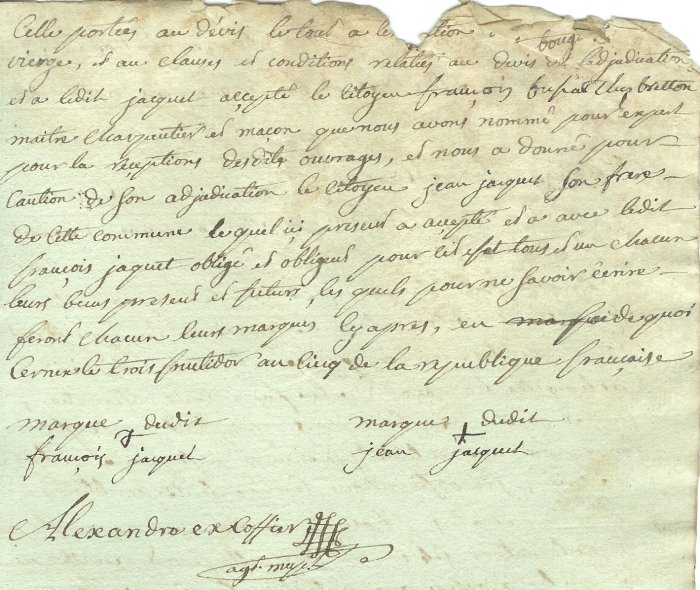 Celle portées au dévis le tout a l'extinction bougie
vierge, et au clauses et conditions relatés au devis et ladjudication
et a ledit jacquet accepté le Citoyen françois breton
maitre Charpantier et maçon que nous avons nommé pour expert
pour la réceptions desdits ouvrages, et nous a donné pour
Caution de son adjudication le Citoyen jean jacquet son frere
de Cette commune le quel ici présent a accepté et a avec ledit
françois jaquet obligé et obligent pour Cet tous et un chacun
leurs biens présent et futurs, les quels pour ne savoir écrire
feront chacun leurs marques cy après, en de quoi
Cernex le trois fructidor au cinq de la république française
marque dudit marque dudit
françois + jacquet jean + jacquet
Alexandre excoffier
agt. mupl.